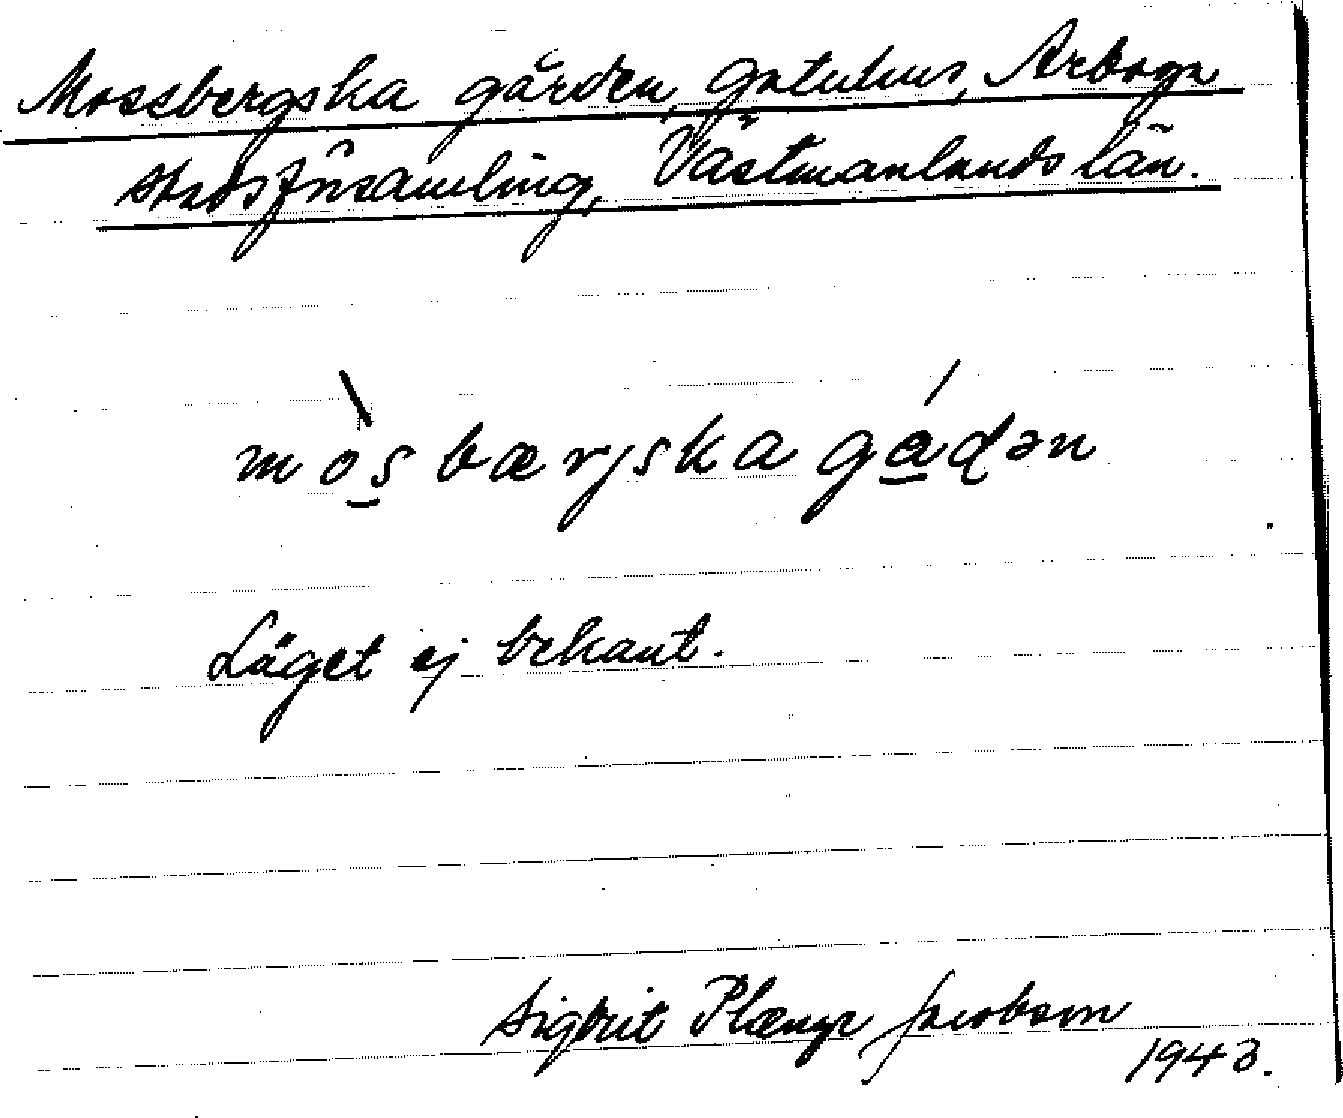 Mossbergska gården, gatuhus, Arboga
stadsförsamling, Västmanlands län.
mòs̱bærjska gá̱ɖən
Läget ej bekant.
Sigbrit Plænge Jacobson
1943.